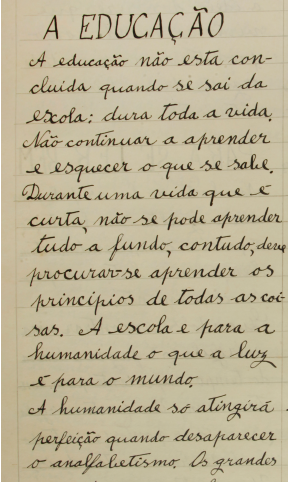 A EDUCAÇÃO
A educação não esta con-
cluida quando se sai da
escola: dura toda a vida.
Não continuar a aprender
e esquecer o que se sabe.
Durante uma vida que e
curta, não se pode aprender
tudo a fundo, contudo, deve
procurar-se aprender os
principios de todas as coi-
sas. A escola e para a
humanidade o que a luz
e para o mundo.
A humanidade so atingirá
perfeição quando desaparecer
o analfabetismo. Os grandes